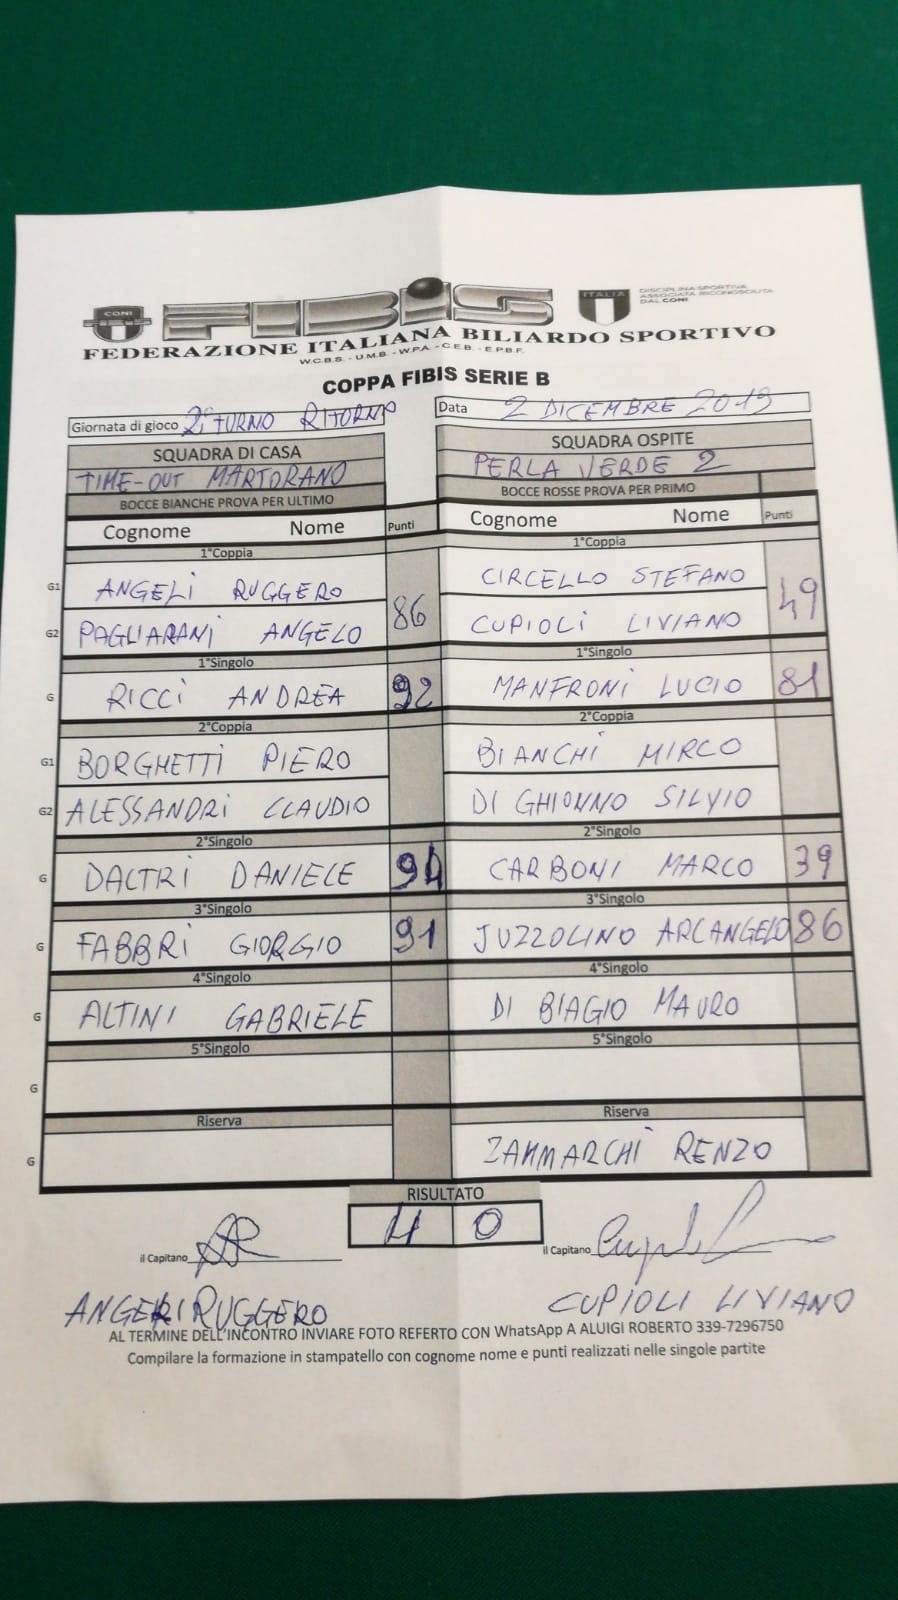 CONI
FIBiS
ITALIA
DISCIPLINA SPORTIVA
ASSOCIATA RICONOSCIUTA
DAL CONI
FEDERAZIONE ITALIANA BILIARDO SPORTIVO
W.C.B.S. - U.M.B. - W.P.A. - C.E.B. - E.P.B.F.
COPPA FIBIS SERIE B
Giornata di gioco 2° TURNO RITORNO Data 2 DICEMBRE 2019
SQUADRA DI CASA SQUADRA OSPITE
TIME-OUT MARTORANO PERLA VERDE 2
BOCCE BIANCHE PROVA PER ULTIMO BOCCE ROSSE PROVA PER PRIMO
Cognome Nome Punti Cognome Nome Punti
1°Coppia 1°Coppia
G1 ANGELI RUGGERO 86 CIRCELLO STEFANO 49
G2 PAGLIARANI ANGELO CUPIOLI LIVIANO
1°Singolo 1°Singolo
G RICCI ANDREA 92 MANFRONI LUCIO 81
2°Coppia 2°Coppia
G1 BORGHETTI PIERO BIANCHI MIRCO
G2 ALESSANDRI CLAUDIO DI GHIONNO SILVIO
2°Singolo 2°Singolo
G DALTRI DANIELE 94 CARBONI MARCO 39
3°Singolo 3°Singolo
G FABBRI GIORGIO 91 JUZZOLINO ARCANGELO 86
4°Singolo 4°Singolo
G ALTINI GABRIELE DI BIAGIO MAURO
5°Singolo 5°Singolo
G
Riserva Riserva
G ZAMMARCHI RENZO
RISULTATO
4 0
il Capitano il Capitano
ANGELI RUGGERO CUPIOLI LIVIANO
AL TERMINE DELL'INCONTRO INVIARE FOTO REFERTO CON WhatsApp A ALUIGI ROBERTO 339-7296750
Compilare la formazione in stampatello con cognome nome e punti realizzati nelle singole partite